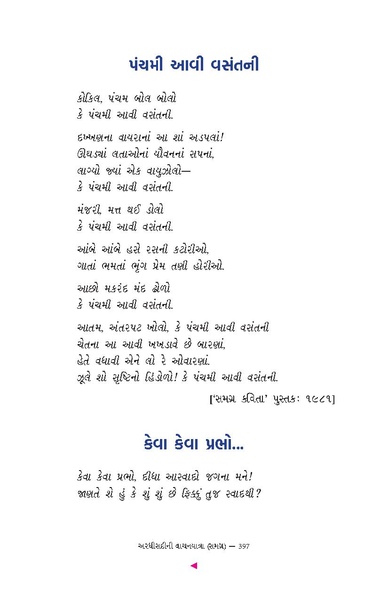 પંચમી આવી વસંતની
કોકિલ, પંચમ બોલ બોલો
કે પંચમી આવી વસંતની.
દખ્ખણના વાયરાનાં આ શાં અડપલાં!
ઊઘડ્યાં લતાઓનાં યૌવનનાં સપનાં,
લાગ્યો જ્યાં એક વાયુઝોલો—
કે પંચમી આવી વસંતની.
મંજરી, મત્ત થઈ ડોલો
કે પંચમી આવી વસંતની.
આંબે આંબે હસે રસની કટોરીઓ,
ગાતાં ભમતાં ભૃંગ પ્રેમ તણી હોરીઓ.
આછો મકરંદ મંદ ઢોળો
કે પંચમી આવી વસંતની.
આતમ, અંતરપટ ખોલો, કે પંચમી આવી વસંતની
ચેતના આ આવી ખખડાવે છે બારણાં,
હેતે વધાવી એને લો રે ઓવારણાં.
ઝૂલે શો સૃષ્ટિનો હિંડોળો! કે પંચમી આવી વસંતની.
[‘સમગ્ર કવિતા’ પુસ્તક: ૧૯૮૧]
કેવા કેવા પ્રભો...
કેવા કેવા પ્રભો, દીધા આસ્વાદો જગના મને!
જાણતે શે હું કે શું શું છે ફિક્કું તુજ સ્વાદથી?
અરધીસદીની વાચનયાત્રા (સમગ્ર) — 397